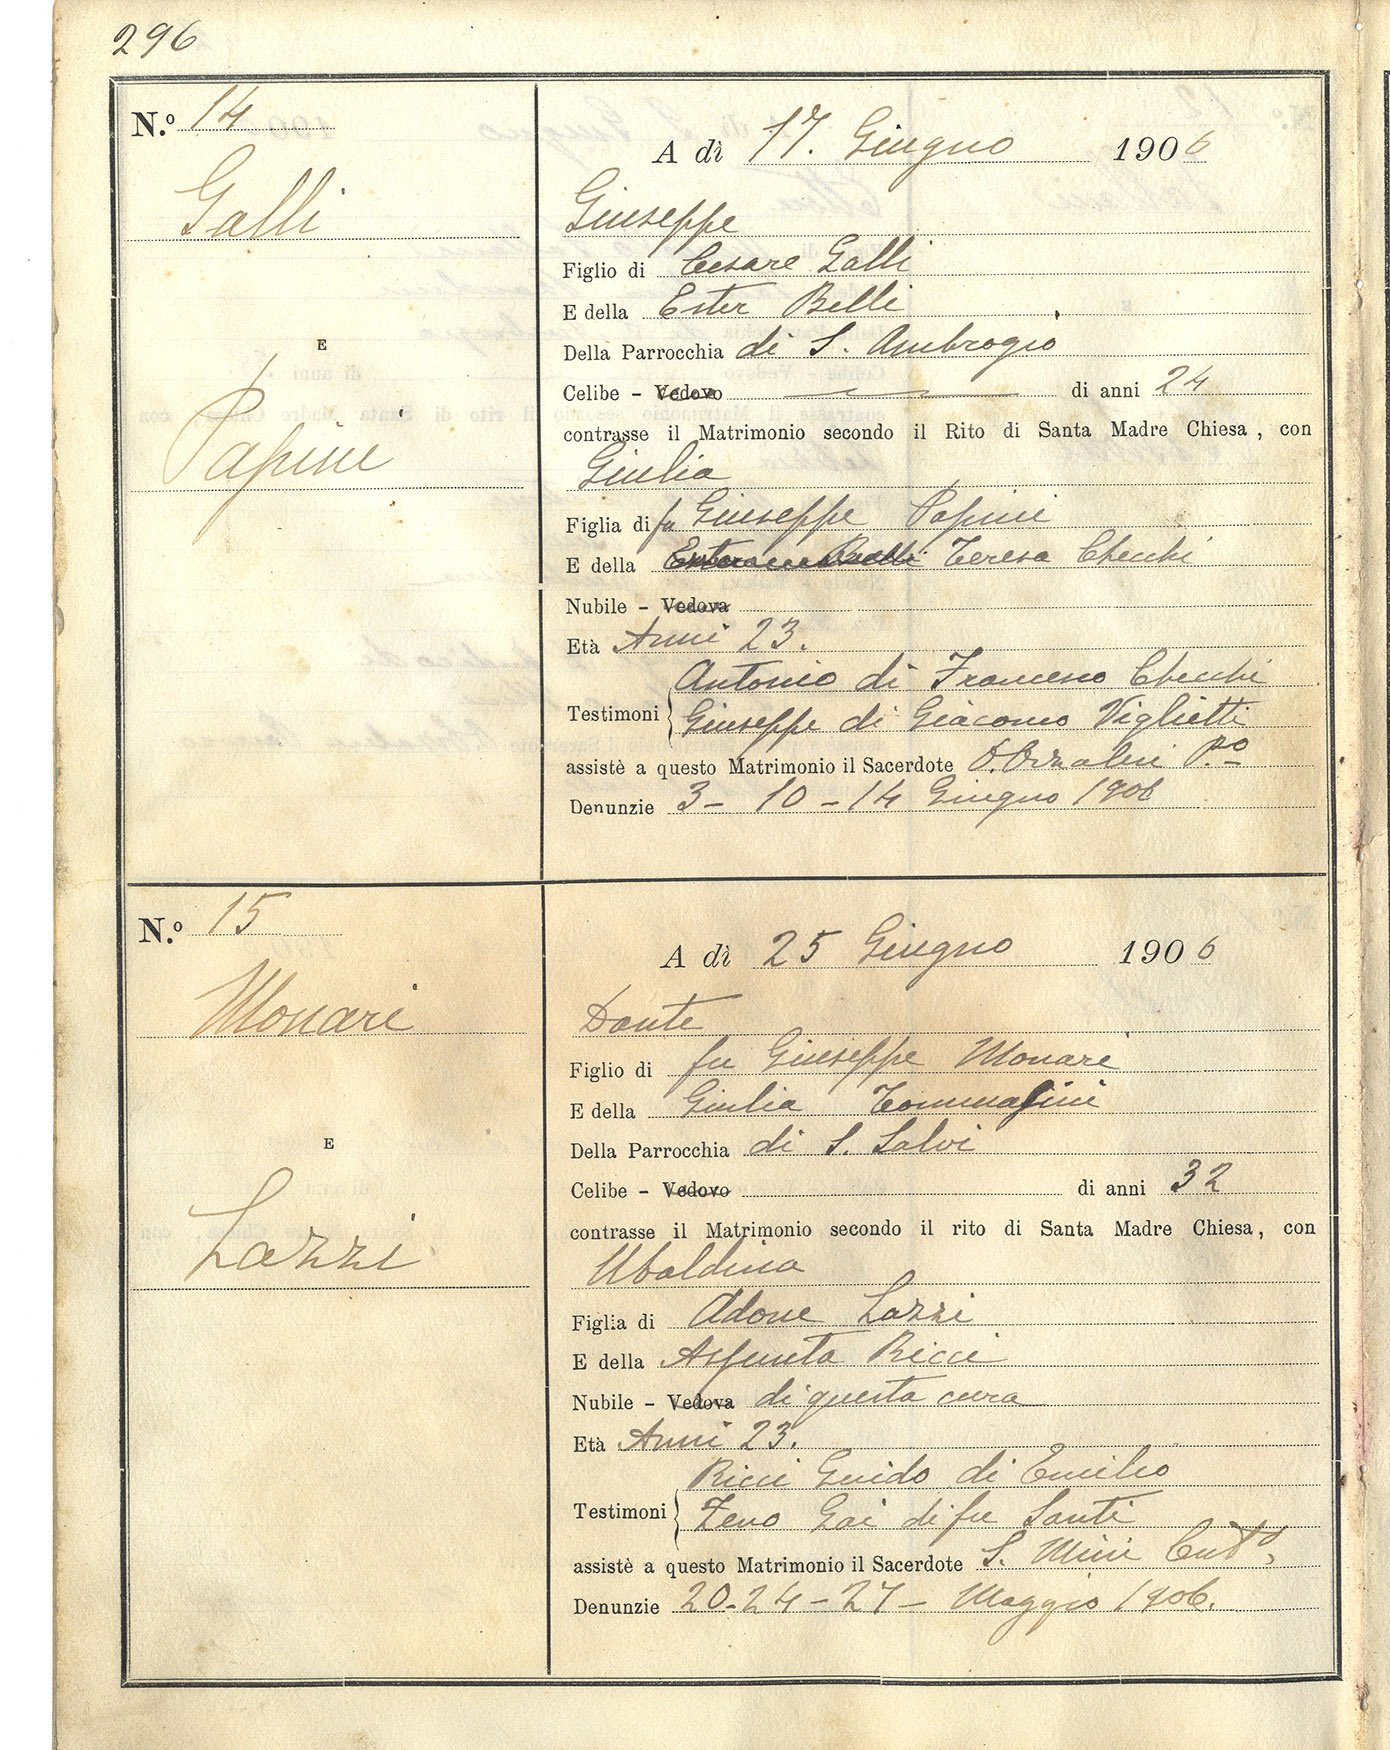 296
N.º 14
Galli
E
Papini
A dì 17. Giugno 1906
Giuseppe
Figlio di Cesare Galli
E della Ester Belli
Della Parrocchia di S. Ambrogio
Celibe - Vedovo di anni 24
contrasse il Matrimonio secondo il Rito di Santa Madre Chiesa, con
Giulia
Figlia di fu Giuseppe Papini
E della Teresa Checchi
Nubile - Vedova
Età Anni 23.
Antonio di Francesco Checchi
Testimoni
Giuseppe di Giacomo Viglietti
assistè a questo Matrimonio il Sacerdote
Denunzie 3 - 10 - 14 Giugno 1906
N.º 15
Monari
E
Lazzi
A dì 25 Giugno 1906
Dante
Figlio di fu Giuseppe Monari
E della Giulia Tommasini
Della Parrocchia di S. Salvi
Celibe - Vedovo di anni 32
contrasse il Matrimonio secondo il rito di Santa Madre Chiesa, con
Ubaldina
Figlia di Adone Lazzi
E della Assunta Ricci
Nubile - Vedova di questa cura
Età Anni 23.
Ricci Guido di Emilio
Testimoni
Zeno Gai di fu Santi
assistè a questo Matrimonio il Sacerdote S. Mini
Denunzie 20 - 24 - 27 - Maggio 1906.